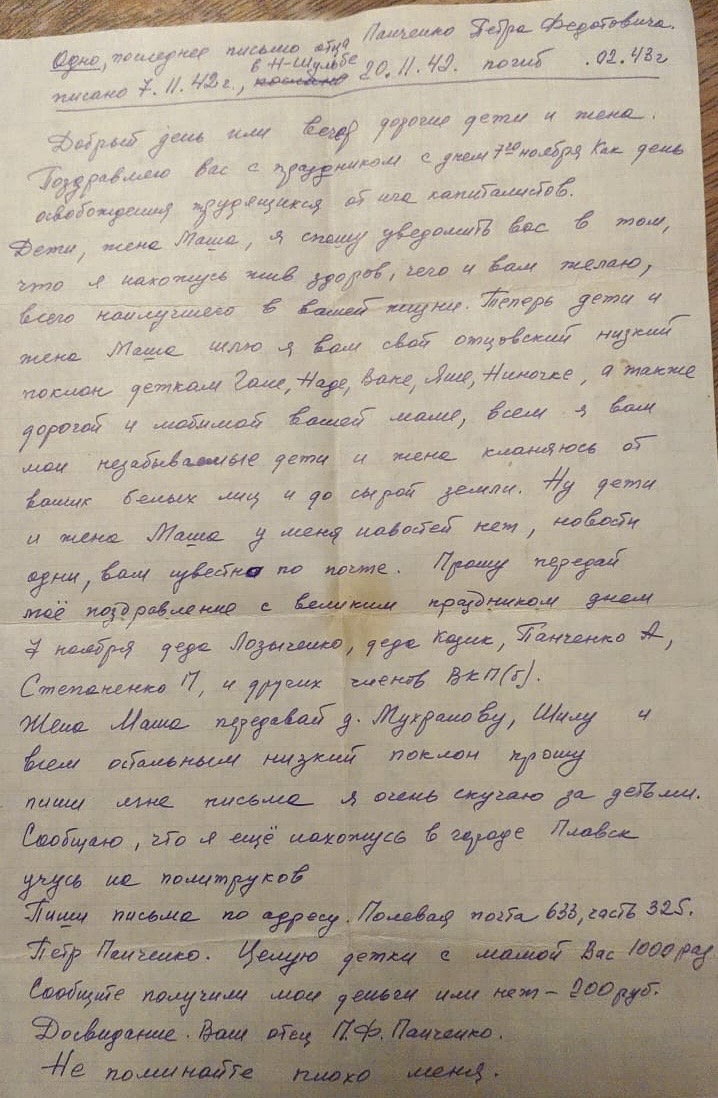 Одно, последнее письмо отца Панченко Петра Федотовича.
писано 7.II.42г., в Н-Шульбе 20.II.42. погиб .02.43г
Добрый день или вечер дорогие дети и жена.
Поздравляю вас с праздником с днем 7го ноября Как день
освобождения трудящихся от ига капиталистов.
Дети, жена Маша, я спешу уведомить вас в том,
что я нахожусь жив здоров, чего и вам желаю,
всего наилучшего в вашей жизни. Теперь дети и
жена Маша шлю я вам свой отцовский низкий
поклон деткам Гале, Наде, Ване, Яше, Ниночке, а также
дорогой и любимой вашей маме, всем я вам
мои незабываемые дети и жена кланяюсь от
ваших белых лиц и до сырой земли. Ну дети
и жена Маша у меня новостей нет, новости
одни, вам известно по почте. Прошу передай
моё поздравление с великим праздником днем
7 ноября деда Лозыченко, деда Козик, Панченко А,
Степаненко П, и других членов ВКП(б).
Жена Маша передавай д. Мухранову, Шилу и
всем остальным низкий поклон прошу
пиши мне письма я очень скучаю за детьми.
Сообщаю, что я ещё нахожусь в городе Плавск
учусь на политруков
Пиши письма по адресу. Полевая почта 633, часть 325.
Петр Панченко. Целую детки с мамой Вас 1000 раз
Сообщите получили мои деньги или нет – 200 руб.
Досвидание. Ваш отец П.Ф. Панченко.
Не поминайте плохо меня.